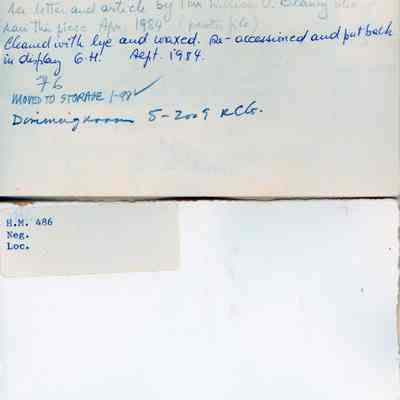 See letter and article by Tim William O. Blaney who
saw the piece Apr. 1984 (photo file)
Cleaned with lye and waxed. Re-accessioned and put back
in display G.H. Sept. 1984.
76
MOVED TO STORAGE 1-98 ✓
Dinningroom 5-2009 RCG.
H.M. 486
Neg.
Loc.